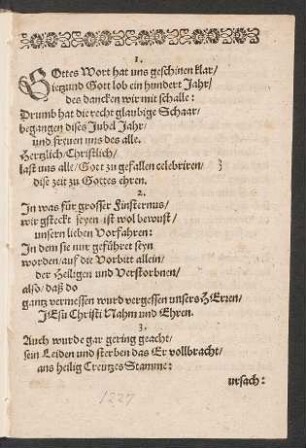 1.
GOttes Wort hat uns geschinen klar/
jetzund Gott lob ein hundert Jahr/
des dancken wir mit schalle:
Drumb hat die recht glaubige Schaar/
begangen dises Jubel Jahr/
und freuen uns des alle.
Hertzlich/Christlich/
last uns alle/Gott zu gefallen celebriren/
dise zeit zu Gottes ehren.
2.
In was für grosser Finsternus/
wir gsteckt seyen ist wol bewust/
unsern lieben Vorfahren:
In dem sie nur geführet seyn
worden/auf die Vorbitt allein/
der Heiligen und Verstorbnen/
also/daß do
gantz vermessen wurd vergessen unsers HErren/
JEsu Christi Nahm und Ehren.
3.
Auch wurde gar gering geacht/
sein Leiden und sterben das Er vollbracht/
ans heilig Creutzes Stamme:
ursach:
1227